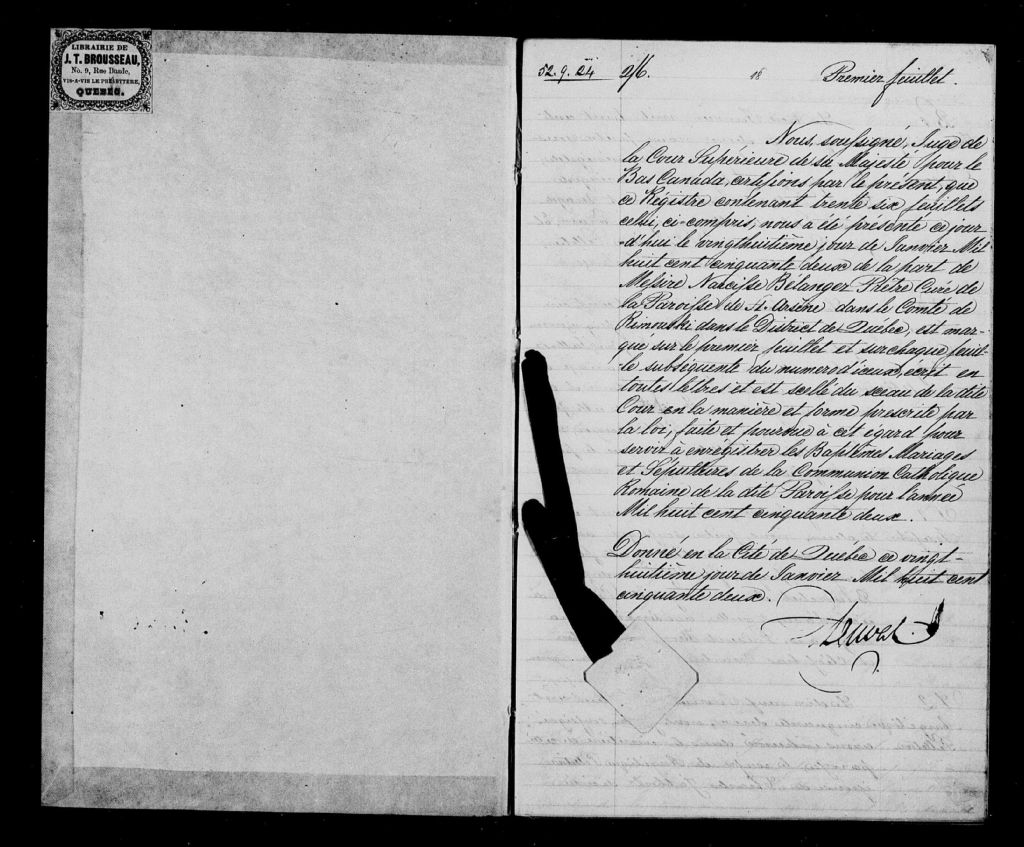 LIBRAIRIE DE
J. T. BROUSSEAU,
No. 9, Rue Buade,
VIS-A-VIS LE PRESBYTERE,
QUEBEC.
52. 9. 24 2/6. 18 Premier feuillet.
Nous, soussigné, Juge de
la Cour Supérieure de sa Majesté pour le
Bas Canada, certifions par le présent, que
ce Régistre contenant trente six feuillets
celui, ci-compris, nous a été présenté ce jour
-d'hui le vingthuitième jour de Janvier Mil
huit cent cinquante deux de la part de
Messire Narcisse Bélanger Prêtre Curé de
la Paroisse de St. Arsène dans le Comté de
Rimouski dans le District de Québec, est mar-
qué sur le premier feuillet et sur chaque feuil-
le subséquente du numero d'iceux, écrit en
toutes lettres et est scellé du sceau de la dite
Cour en la manière et forme prescrite par
la loi, faite et pourvue à cet égard pour
servir à enrégistrer les Baptêmes Mariages
et Sépultures de la Communion Catholique
Romaine de la dite Paroisse pour l'année
Mil huit cent cinquante deux.
Donné en la Cité de Québec ce vingt-
huitième jour de Janvier Mil huit cent
cinquante deux.